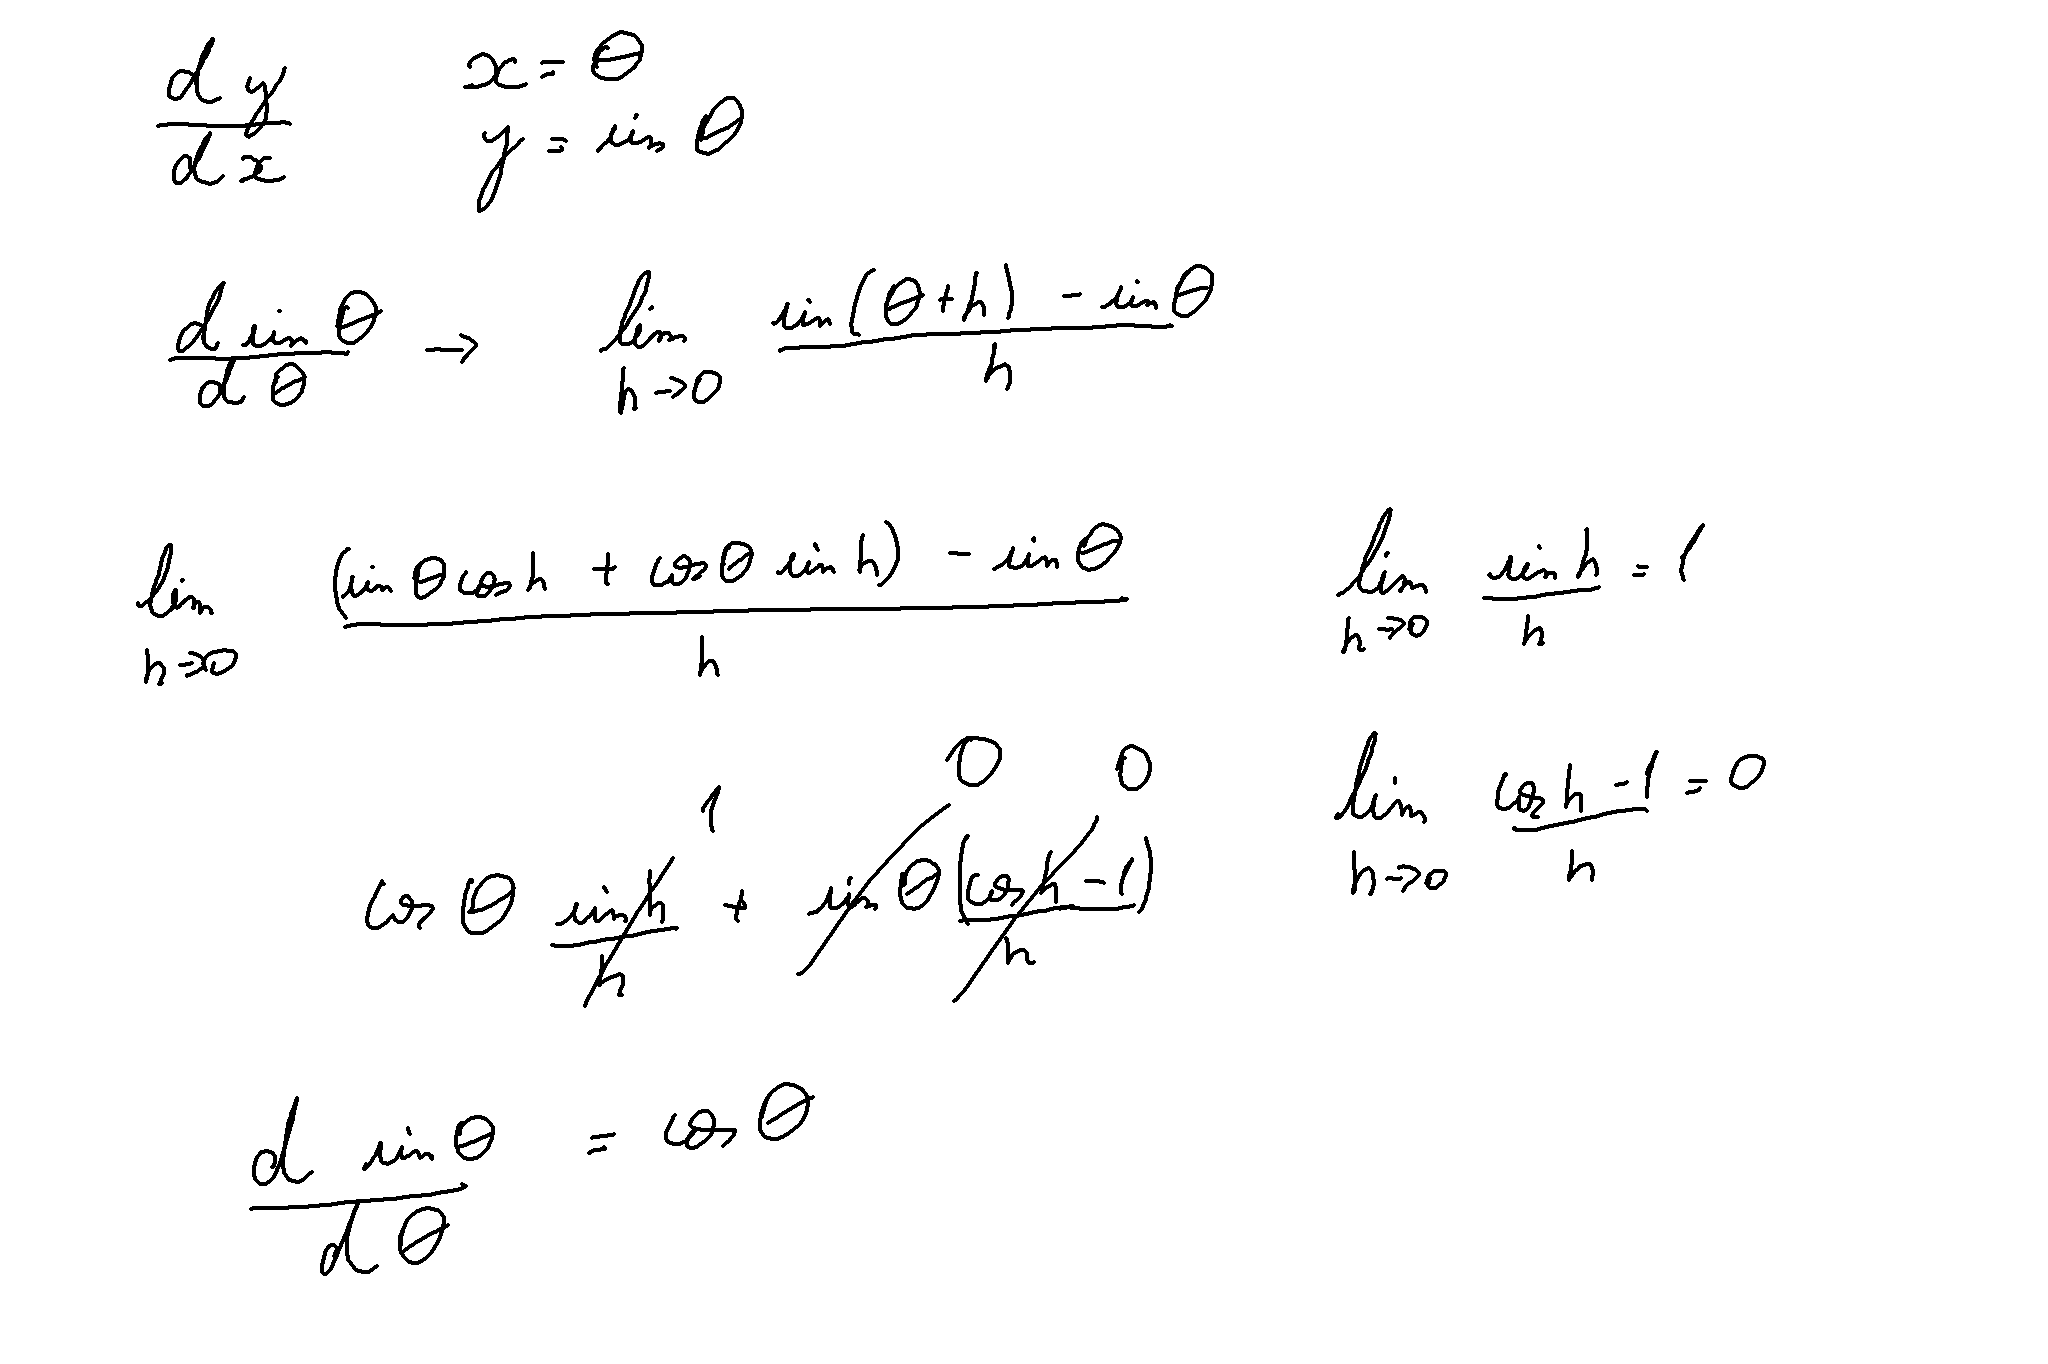 dy/dx x = θ
y = sin θ
d sin θ / dθ → lim h→0 (sin(θ+h) - sin θ) / h
lim h→0 ((sin θ cos h + cos θ sin h) - sin θ) / h
lim h→0 sin h / h = 1
1 0 0
cos θ sin h / h + sin θ (cos h - 1) / h
lim h→0 (cos h - 1) / h = 0
d sin θ / dθ = cos θ